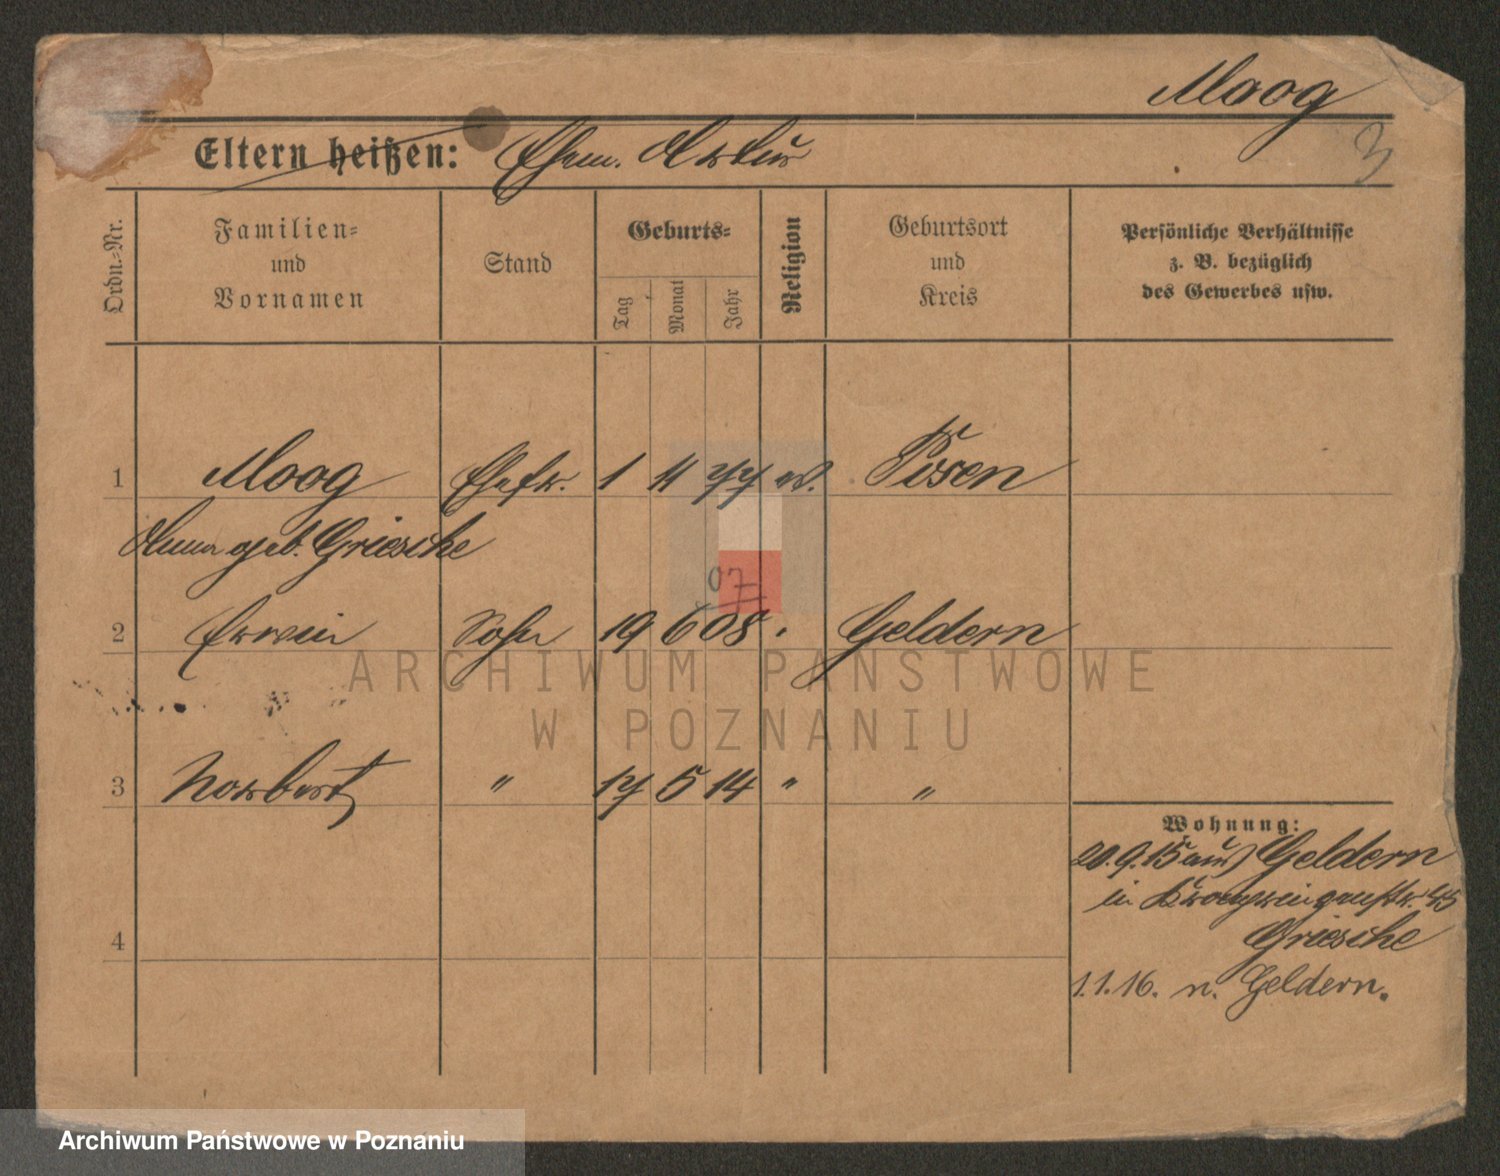 Moog
3
Eltern heißen: Ehem. Artur
Ordn.-Nr.
Familien-
und
Vornamen
Stand
Geburts-
Tag
Monat
Jahr
Religion
Geburtsort
und
Kreis
Persönliche Verhältnisse
z. B. bezüglich
des Gewerbes usw.
1 Moog Ehefr. 1 4 77 Posen
Anna geb. Griesche
07
2 Erwin Sohn 19 6 08 Geldern
ARCHIWUM PAŃSTWOWE
W POZNANIU
3 Norbert " 17 5 14 " "
4
Wohnung:
20.9.15 aus Geldern
in Kronprinzenstr. 45
Griesche
1.1.16. n. Geldern.
Archiwum Państwowe w Poznaniu